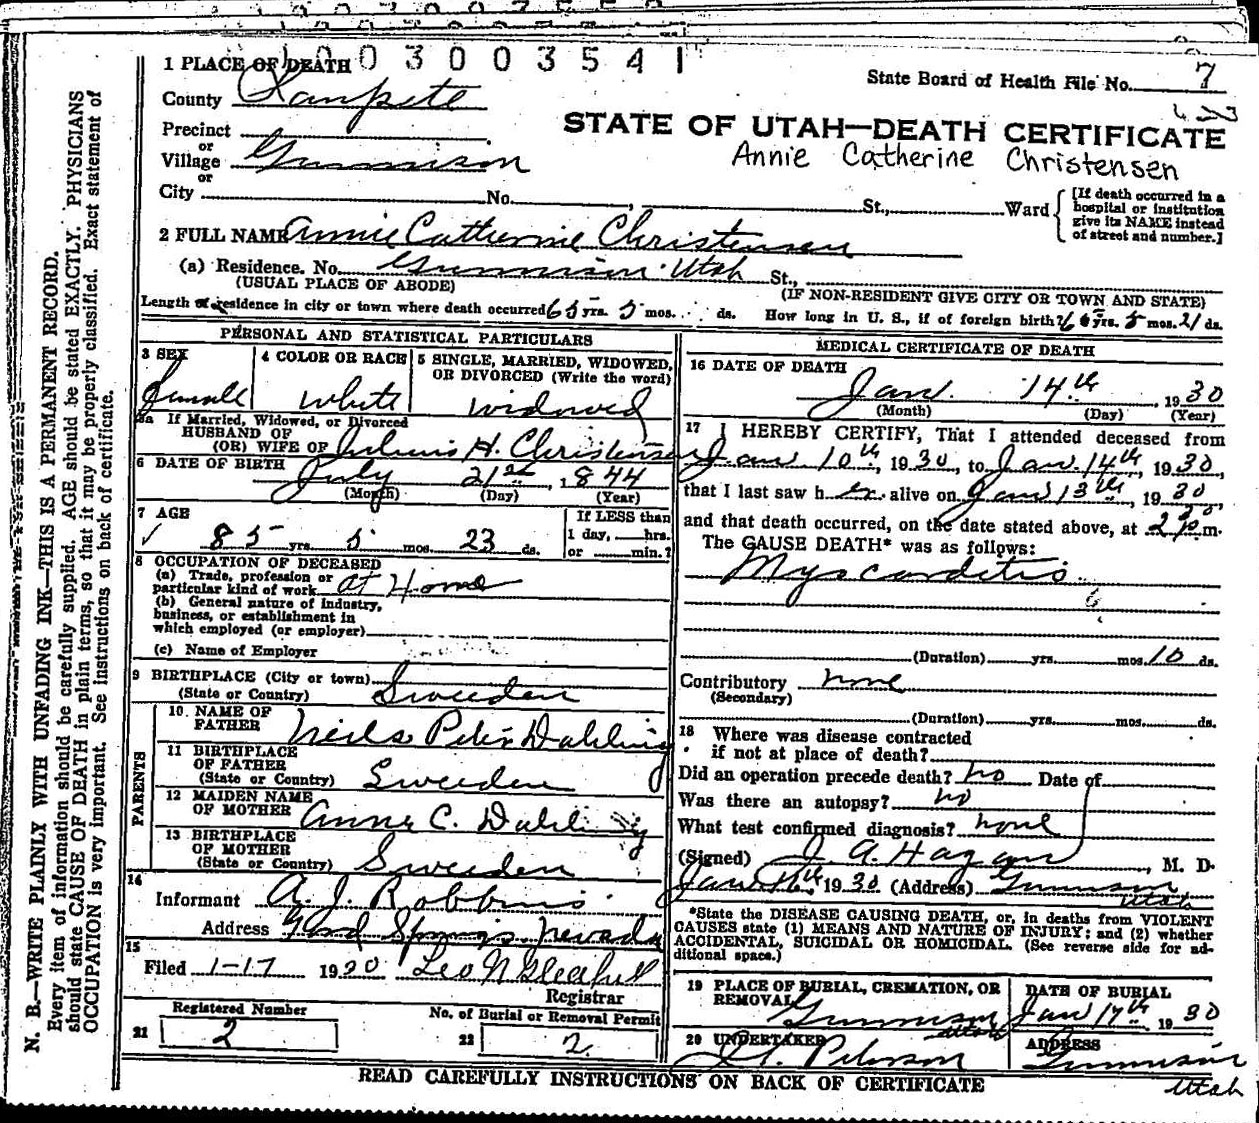 1003003541
1 PLACE OF DEATH
State Board of Health File No. 7
County Sanpete
STATE OF UTAH—DEATH CERTIFICATE
Precinct
or
Annie Catherine Christensen
Village Gunnison
or
City No. , St., Ward
[If death occurred in a
hospital or institution
give its NAME instead
of street and number.]
2 FULL NAME Annie Catherine Christensen
(a) Residence. No. Gunnison Utah St.,
(USUAL PLACE OF ABODE) (IF NON-RESIDENT GIVE CITY OR TOWN AND STATE)
Length of residence in city or town where death occurred 65 yrs. 5 mos. ds. How long in U. S., if of foreign birth? 65 yrs. 5 mos. 21 ds.
PERSONAL AND STATISTICAL PARTICULARS
3 SEX
Female
4 COLOR OR RACE
White
5 SINGLE, MARRIED, WIDOWED,
OR DIVORCED (Write the word)
Widowed
5a If Married, Widowed, or Divorced
HUSBAND OF
(OR) WIFE OF Julius H. Christensen
6 DATE OF BIRTH July 21st, 1844
(Month) (Day) (Year)
7 AGE
85 yrs. 5 mos. 23 ds.
If LESS than
1 day, hrs.
or min.?
8 OCCUPATION OF DECEASED
(a) Trade, profession or
particular kind of work at Home
(b) General nature of industry,
business, or establishment in
which employed (or employer)
(c) Name of Employer
9 BIRTHPLACE (City or town)
(State or Country) Sweeden
PARENTS
10 NAME OF
FATHER Neils Peter Dahling
11 BIRTHPLACE
OF FATHER
(State or Country) Sweeden
12 MAIDEN NAME
OF MOTHER Anna C. Dahling
13 BIRTHPLACE
OF MOTHER
(State or Country) Sweeden
14
Informant A. J. Robbins
Address Springs Nevada
15
Filed 1-17 1930 Leo N
Registrar
Registered Number
21 2
No. of Burial or Removal Permit
22 2
MEDICAL CERTIFICATE OF DEATH
16 DATE OF DEATH
Jan. 14th, 1930
(Month) (Day) (Year)
17 I HEREBY CERTIFY, That I attended deceased from
Jan 10th, 1930, to Jan. 14th, 1930,
that I last saw her alive on Jan 13th, 1930
and that death occurred, on the date stated above, at 2 p.m.
The CAUSE DEATH* was as follows:
Myocarditis
(Duration) yrs. mos. 10 ds.
Contributory none
(Secondary)
(Duration) yrs. mos. ds.
18 Where was disease contracted
if not at place of death?
Did an operation precede death? no Date of
Was there an autopsy? no
What test confirmed diagnosis? none
(Signed) J. A. Hagan, M. D.
Jan 16th, 1930 (Address) Gunnison
Utah
*State the DISEASE CAUSING DEATH, or, in deaths from VIOLENT
CAUSES state (1) MEANS AND NATURE OF INJURY; and (2) whether
ACCIDENTAL, SUICIDAL OR HOMICIDAL. (See reverse side for ad-
ditional space.)
19 PLACE OF BURIAL, CREMATION, OR
REMOVAL
Gunnison
Utah
DATE OF BURIAL
Jan 17th 1930
20 UNDERTAKER
Peterson
ADDRESS
Gunnison
Utah
READ CAREFULLY INSTRUCTIONS ON BACK OF CERTIFICATE
N. B.—WRITE PLAINLY WITH UNFADING INK—THIS IS A PERMANENT RECORD.
Every item of information should be carefully supplied. AGE should be stated EXACTLY. PHYSICIANS
should state CAUSE OF DEATH in plain terms, so that it may be properly classified. Exact statement of
OCCUPATION is very important. See instructions on back of certificate.